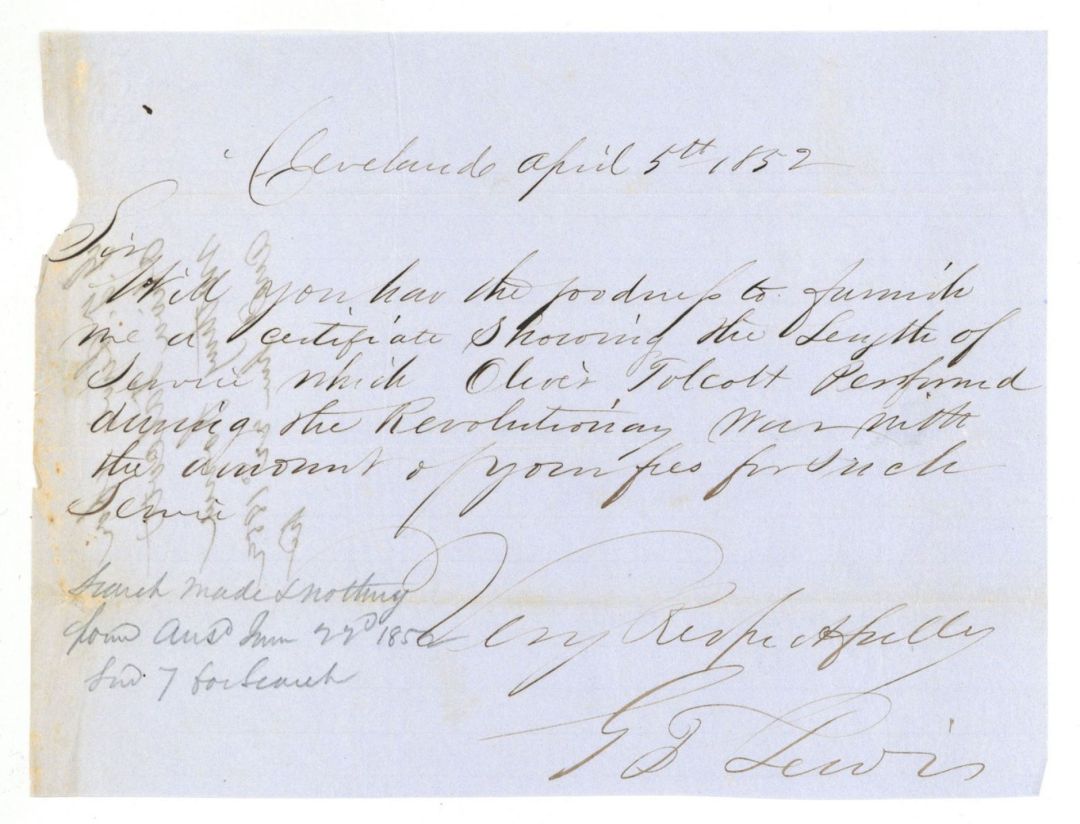 Cleveland April 5th 1852
Sir
Will you hav the goodness to furnish
me a certifiate Showing the Length of
Servie which Oliver Tolcott Performed
during the Revolutionary War with
the amount of your fees for Such
Servie
Very Respectfully
G T Lewis
Search made & nothing
foun Ansd June 22d 1852
for Search